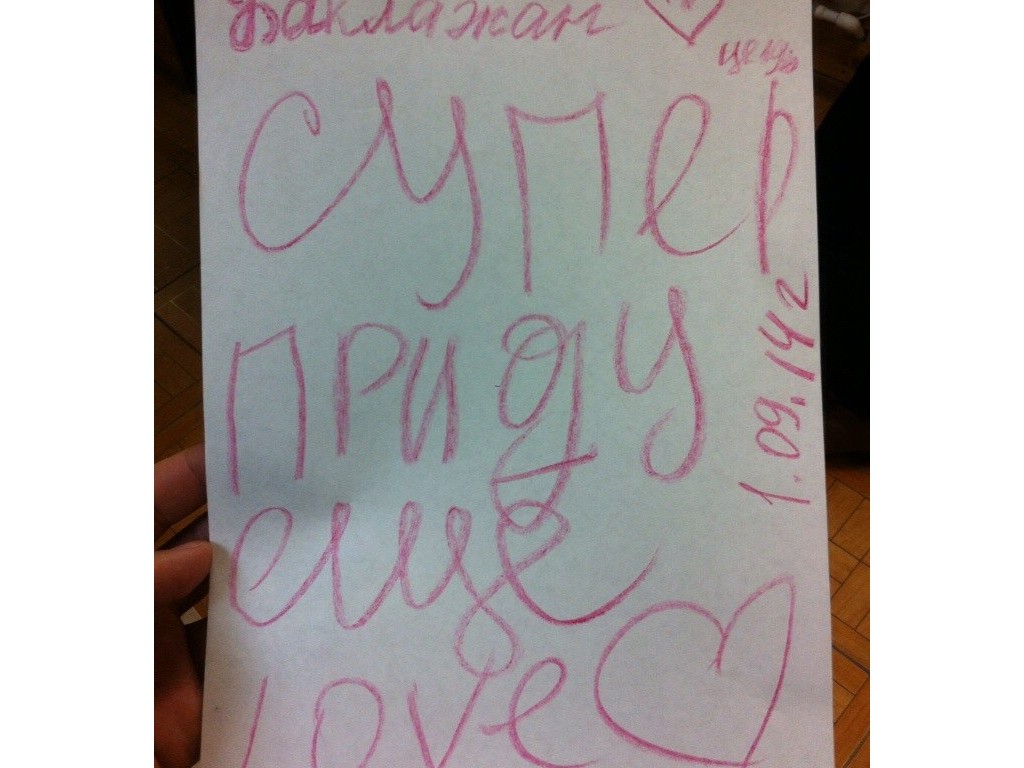 Баклажан
супер
приду
еще
love
1.09.14г